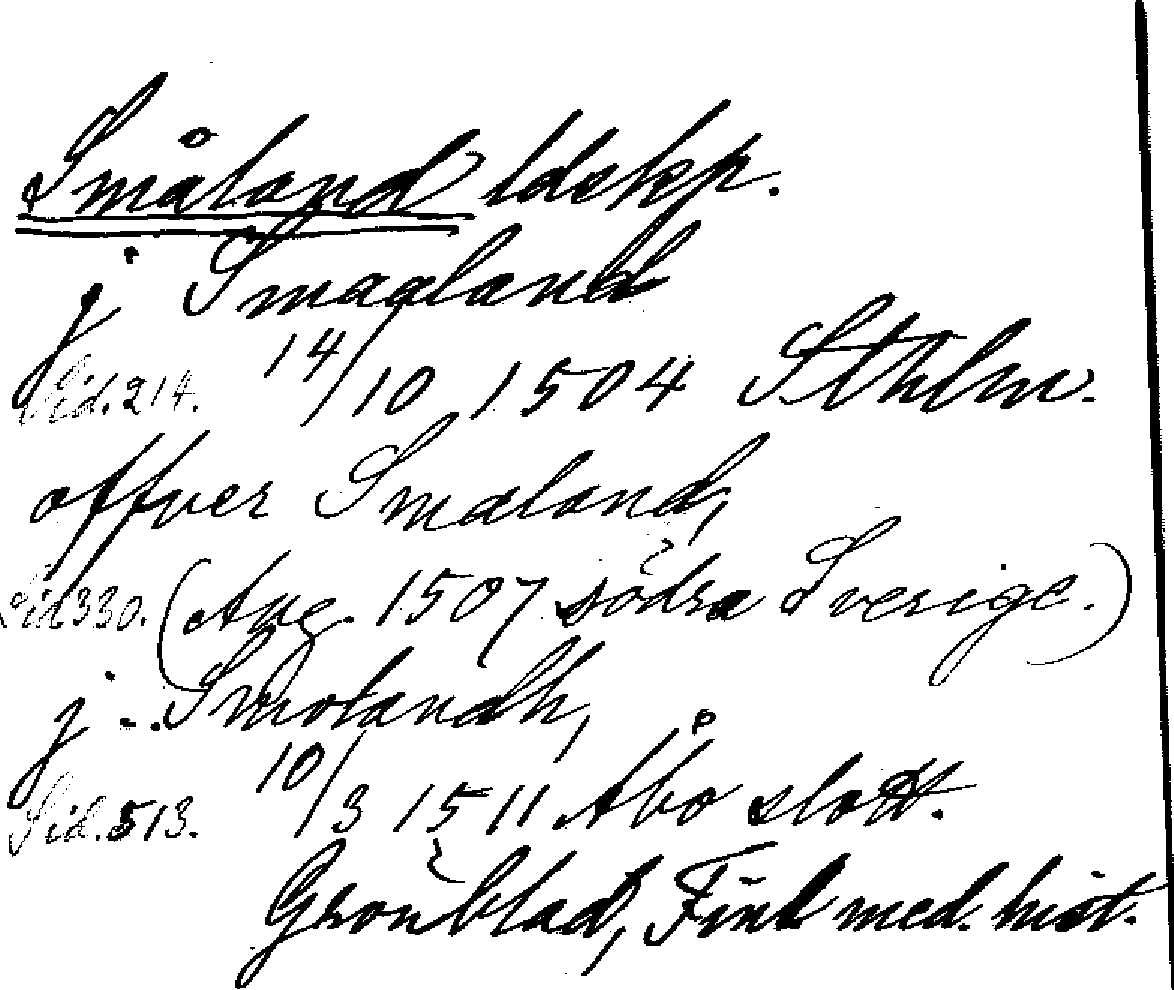 Småland ldskp.
j Smaaland
Sid. 214. 14/10 1504 Sthlm.
offver Smaland,
Sid 330. (Aug. 1507 södra Sverige.)
j .. Smolandh,
Sid. 513. 10/3 1511 Åbo slott.
Grönblad, Finl med. hist.